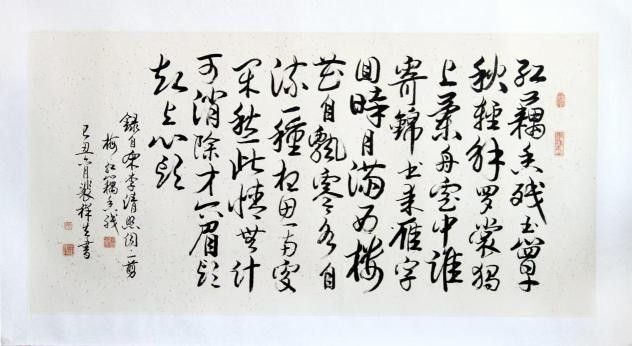 红藕香残玉簟
秋轻解罗裳独
上兰舟雲中谁
寄锦书来雁字
回時月满西楼
花自飘零水自
流一種相思两处
闲愁此情無计
可消除才下眉头
却上心头
錄自宋李清照词一剪
梅红藕香残
己丑六月裴祥生書